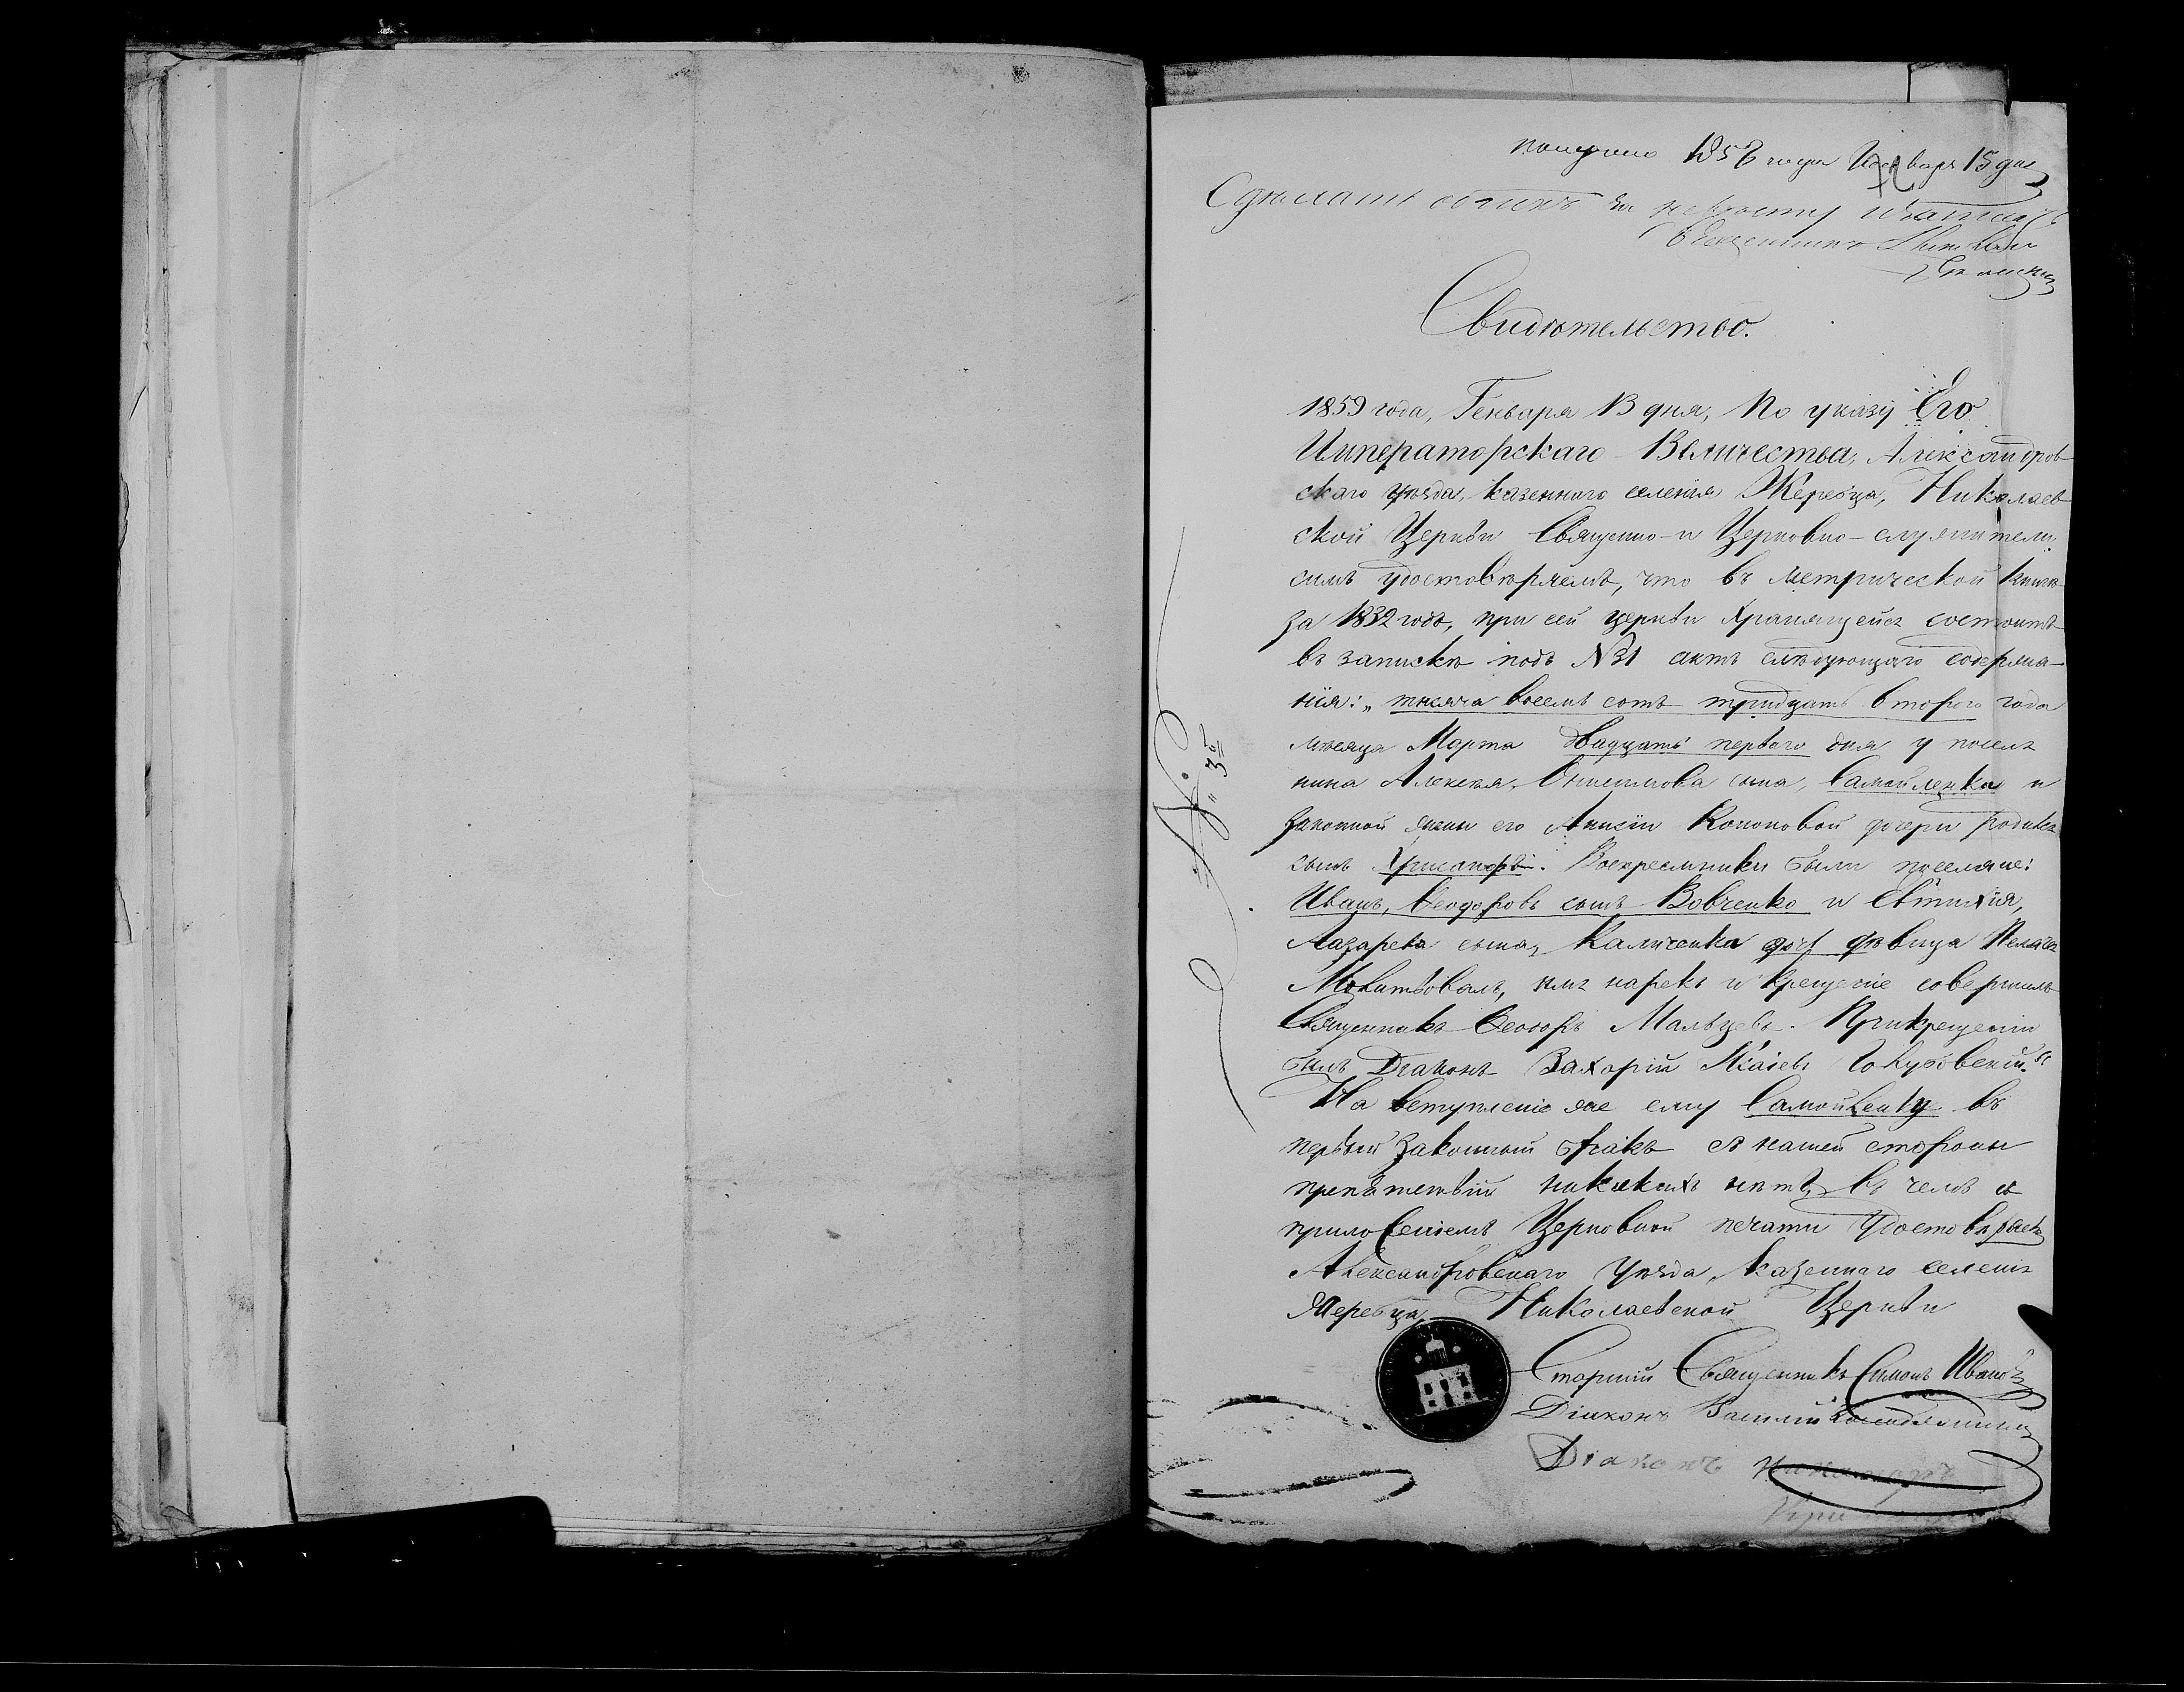 получено 1859 года Январь 15 дня
Сдѣлать обыскъ
Священникъ
Свидѣтельство.
1859 года, Генваря 13 дня, По указу Его
Императорскаго Величества, Александров
скаго уѣзда, казеннаго селенія Жеребца, Николаев
ской Церкви Священно-и Церковно-служители
симъ удостовѣряемъ, что въ метрической книгѣ
за 1832 годъ, при сей церкви хранящейся состоитъ
въ запискѣ подъ №31 актъ слѣдующаго содержа-
нія: „тысяча восемь сотъ тридцать втораго года
мѣсяца Марта двадцать перваго дня у поселя
нина Алексѣя, Онисимова сына, Самойленка и
законной жены его Анисіи Кононовой дочери родился
сынъ Хрисанфъ. Воспреемники были поселяне:
Иванъ, Ѳеодоровъ сынъ Вовченко и Евтихія,
Лазарева сына, Каличенка дочь дѣвица Пелагія
Молитвовалъ, имя нарекъ и крещеніе совершилъ
Священникъ Ѳеодоръ Мальцевъ. При крещеніи
былъ Діаконъ Захарій
На вступленіе же ему Самойленку въ
первый законный бракъ съ нашей стороны
препятствій никакихъ нѣтъ, въ чемъ съ
приложеніемъ Церковной печати удостовѣряемъ
Александровскаго Уѣзда, Казеннаго селенія
Жеребца, Николаевской Церкви
Старшій Священникъ Симонъ Ивановъ
Діаконъ Василій
Діаконъ Никаноръ
№ 3й